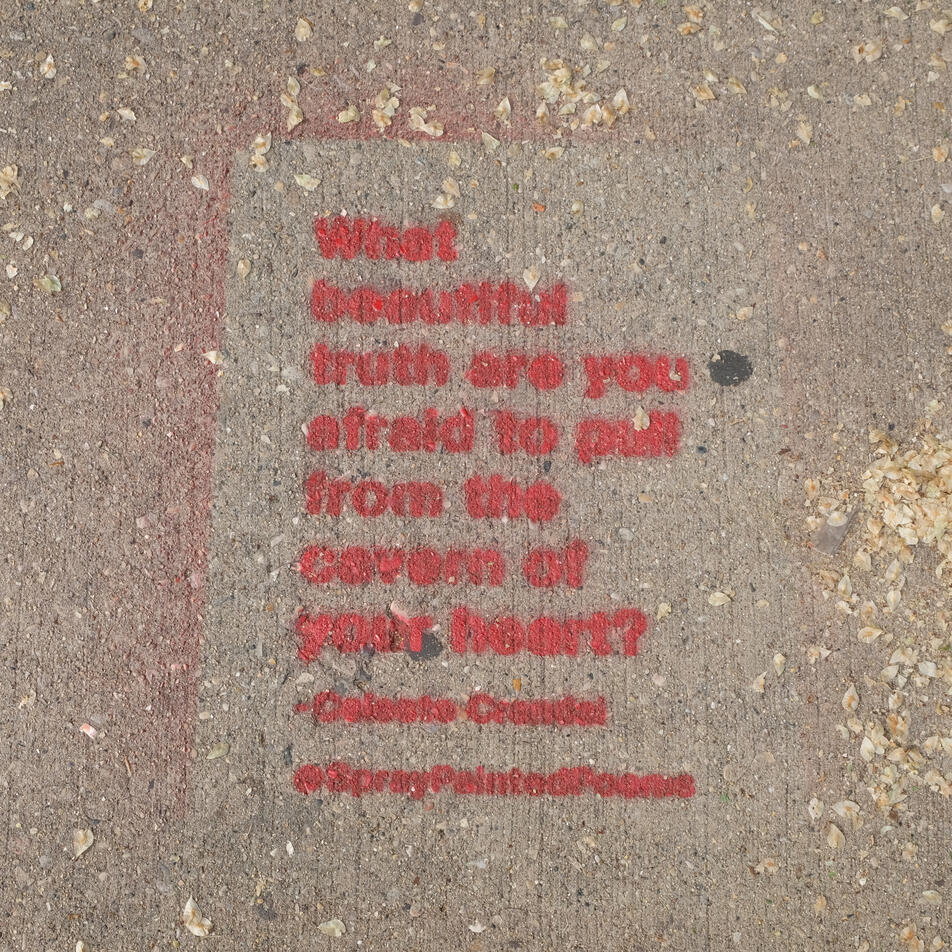 What
beautiful
truth are you
afraid to pull
from the
cavern of
your heart?
-Celeste Crandal
@SprayPaintedPoems